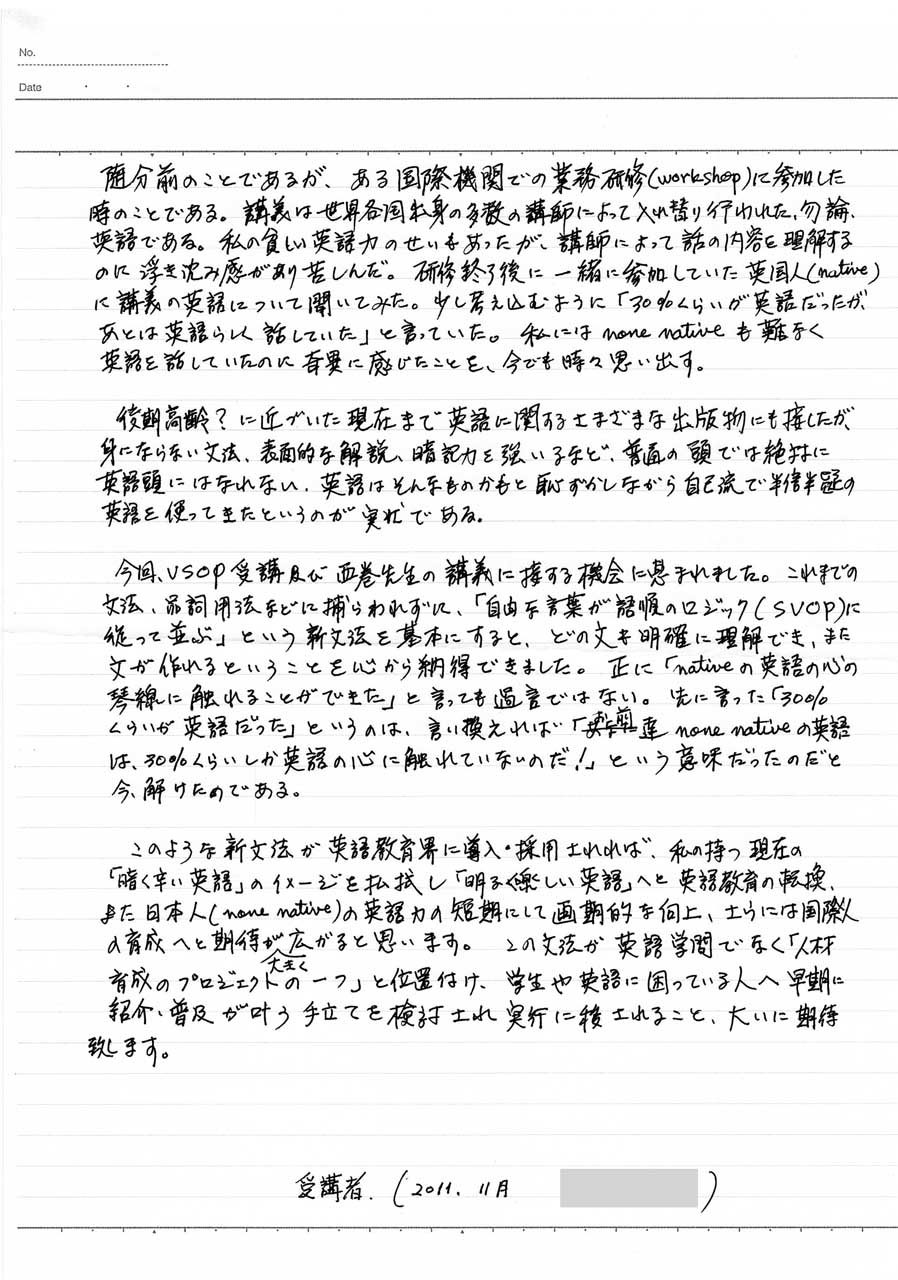 No.
Date ・ ・
随分前のことであるが、ある国際機関での業務研修(workshop)に参加した
時のことである。講義は世界各国出身の多数の講師によって入れ替り行われた、勿論、
英語である。私の貧しい英語力のせいもあったが、講師によって話の内容を理解する
のに浮き沈み感があり苦しんだ。研修終了後に一緒に参加していた英国人(native)
に講義の英語について聞いてみた。少し考え込むように「30%くらいが英語だったが、
あとは英語らしく話していた」と言っていた。私にはnone nativeも難なく
英語を話していたのに奇異に感じたことを、今でも時々思い出す。
後期高齢?に近づいた現在まで英語に関するさまざまな出版物にも接したが、
身にならない文法、表面的な解説、暗記力を強いるなど、普通の頭では絶対に
英語頭にはなれない、英語はそんなものかもと恥ずかしながら自己流で半信半疑の
英語を使ってきたというのが実状である。
今回、VSOP受講及び西巻先生の講義に接する機会に恵まれました。これまでの
文法、品詞用法などに捕らわれずに、「自由な言葉が語順のロジック(SVOP)に
従って並ぶ」という新文法を基本にすると、どの文も明確に理解でき、また
文が作れるということを心から納得できました。正に「nativeの英語の心の
琴線に触れることができた」と言っても過言ではない。先に言った「30%
くらいが英語だった」というのは、言い換えれば「お前達none nativeの英語
は、30%くらいしか英語の心に触れていないのだ!」という意味だったのだと
今、解けたのである。
このような新文法が英語教育界に導入・採用されれば、私の持つ現在の
「暗く辛い英語」のイメージを払拭し「明るく楽しい英語」へと英語教育の転換、
また日本人(none native)の英語力の短期にして画期的な向上、さらには国際人
の育成へと期待が大きく広がると思います。この文法が英語学問でなく「人材
育成のプロジェクトの一つ」と位置付け、学生や英語に困っている人へ早期に
紹介・普及が叶う手立てを検討され実行に移されること、大いに期待
致します。
受講者.(2011. 11月 )